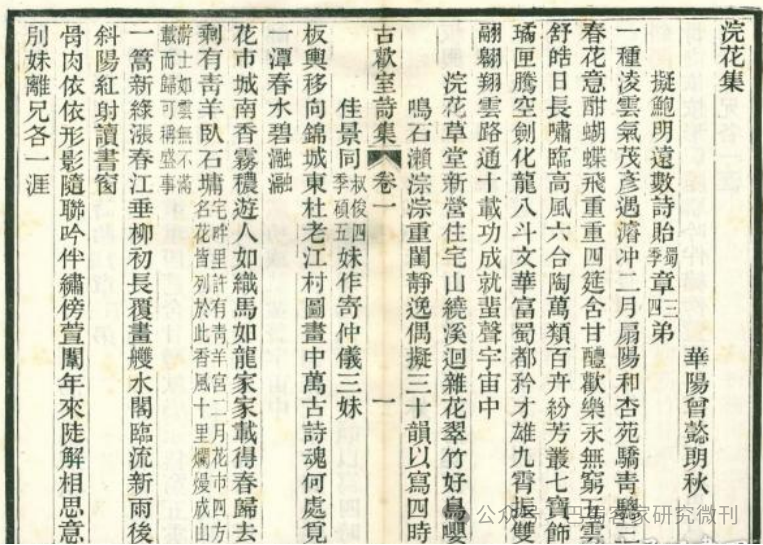 浣花集
華陽曾懿朗秋
擬鮑明遠數詩貽蜀章三季四弟
一種凌雲氣茂彥遇濬冲二月扇陽和杏苑驕青驄三
春花意酣蝴蝶飛重重四筵含甘醴歡樂永無窮五雲
舒皓日長嘯臨高風六合陶萬類百卉紛芳叢七寶飾
璚匣騰空劍化龍八斗文華富蜀都矜才雄九霄振雙
翮翱翔雲路通十載功成就蜚聲宇宙中
浣花草堂新營住宅山繞溪迴雜花翠竹好鳥嚶
鳴石瀨淙淙重闈靜逸偶擬三十韻以寫四時
古歡室詩集 卷一 一
佳景同叔俊四季碩五妹作寄仲儀三妹
板輿移向錦城東杜老江村圖畫中萬古詩魂何處覓
一潭春水碧瀜瀜
花市城南香霧穠遊人如織馬如龍家家載得春歸去
剩有青羊臥石墉宅畔里許有青羊宮二月花市四方名花皆列於此香風十里爛熳成山
游士如雲無不滿載而歸可稱盛事
一篙新綠漲春江垂柳初長覆畫艭水閣臨流新雨後
斜陽紅射讀書窗
骨肉依依形影隨聯吟伴繡傍萱闈年來陡解相思意
別妹離兄各一涯
公众号·巴蜀客家研究微刊